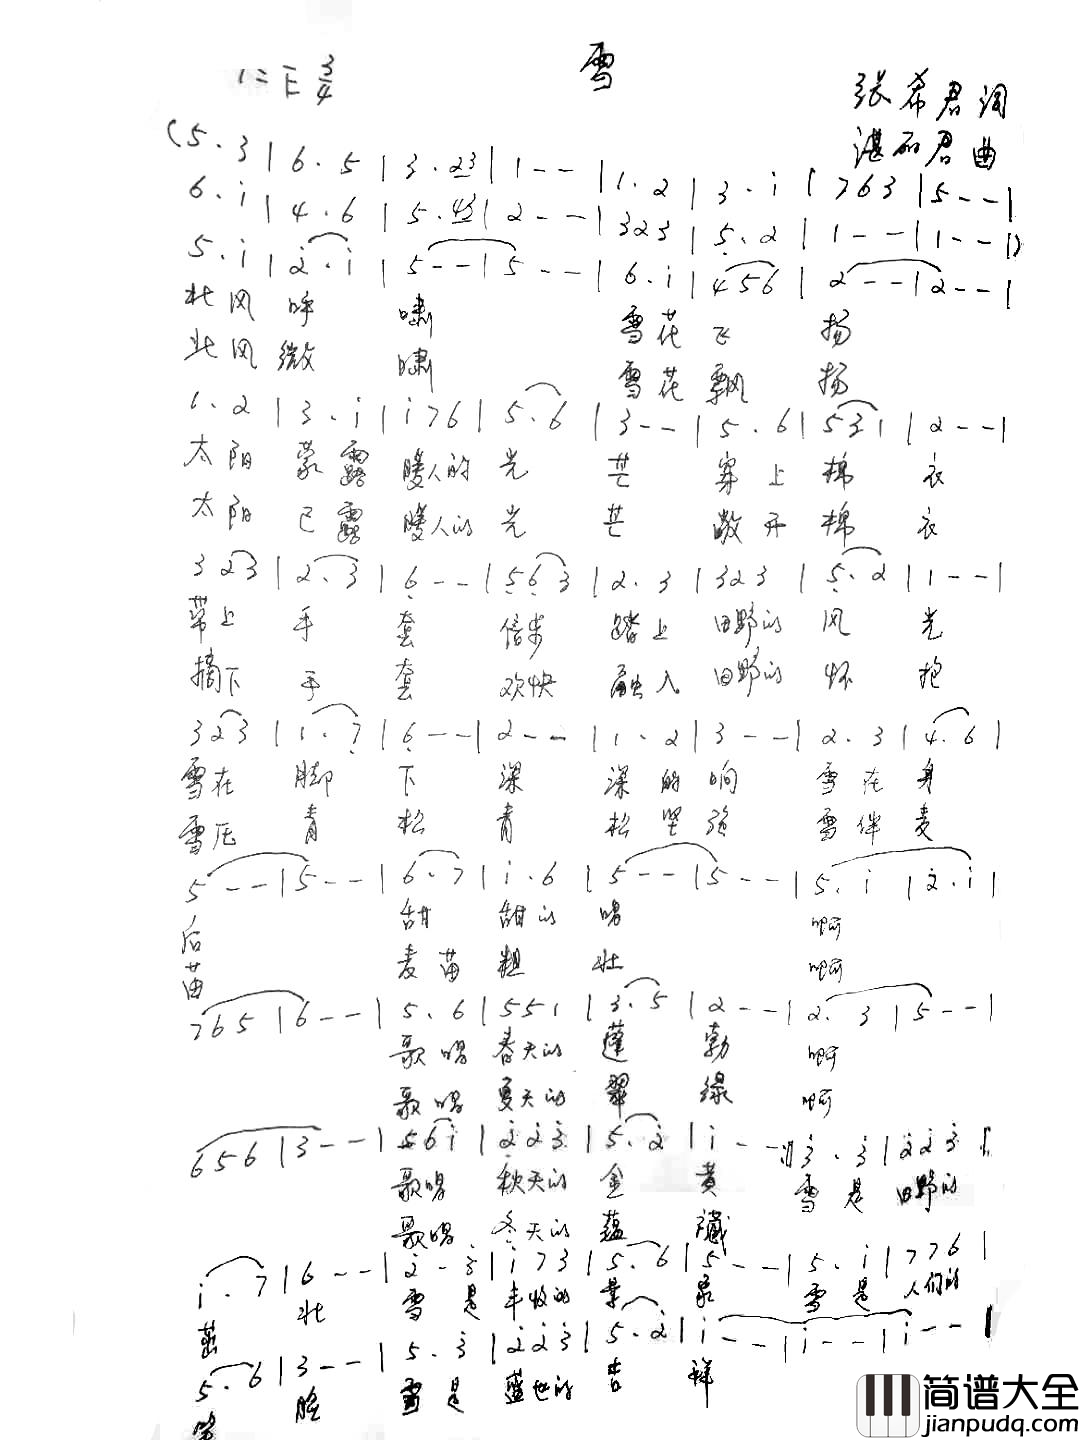 雪
1=E 3/4
张希君词
湛 君曲
(5·3|6·5|3·23|1--|1·2|3·i|763|5--|
6·i|4·6|5·43|2--|323|5·2|1--|1--|)
5·i|2·i|5--|5--|6·i|456|2--|2--|
北风呼啸 雪花飞扬
北风微啸 雪花飘扬
1·2|3·i|i76|5·6|3--|5·6|531|2--|
太阳蒙露暖人的光芒 穿上棉衣
太阳已露暖人的光芒 敞开棉衣
323|2·3|6--|563|2·3|323|5·2|1--|
带上手套 信步踏上田野的风光
摘下手套 欢快融入田野的怀抱
323|1·7|6--|2--|1·2|3--|2·3|4·6|
雪在脚下深深的响 雪在身
雪压青松青松坚强 雪伴麦
5--|5--|6·7|i·6|5--|5--|5·i|2·i|
后 甜甜的唱 啊
苗 麦苗粗壮 啊
765|6--|5·6|551|3·5|2--|2·3|5--|
歌唱春天的蓬勃 啊
歌唱夏天的翠绿 啊
656|3--|56i|223|5·2|i--:|3·3|223|
歌唱秋天的金黄 雪是田野的
歌唱冬天的蕴藏
i·7|6--|2·3|i73|5·6|5--|5·i|776|
茁壮 雪是丰收的景象 雪是人们的
5·6|3--|5·3|223|5·2|i--|i--|i--|
笑脸 雪是盛世的吉祥
简谱大全
jianpudq.com